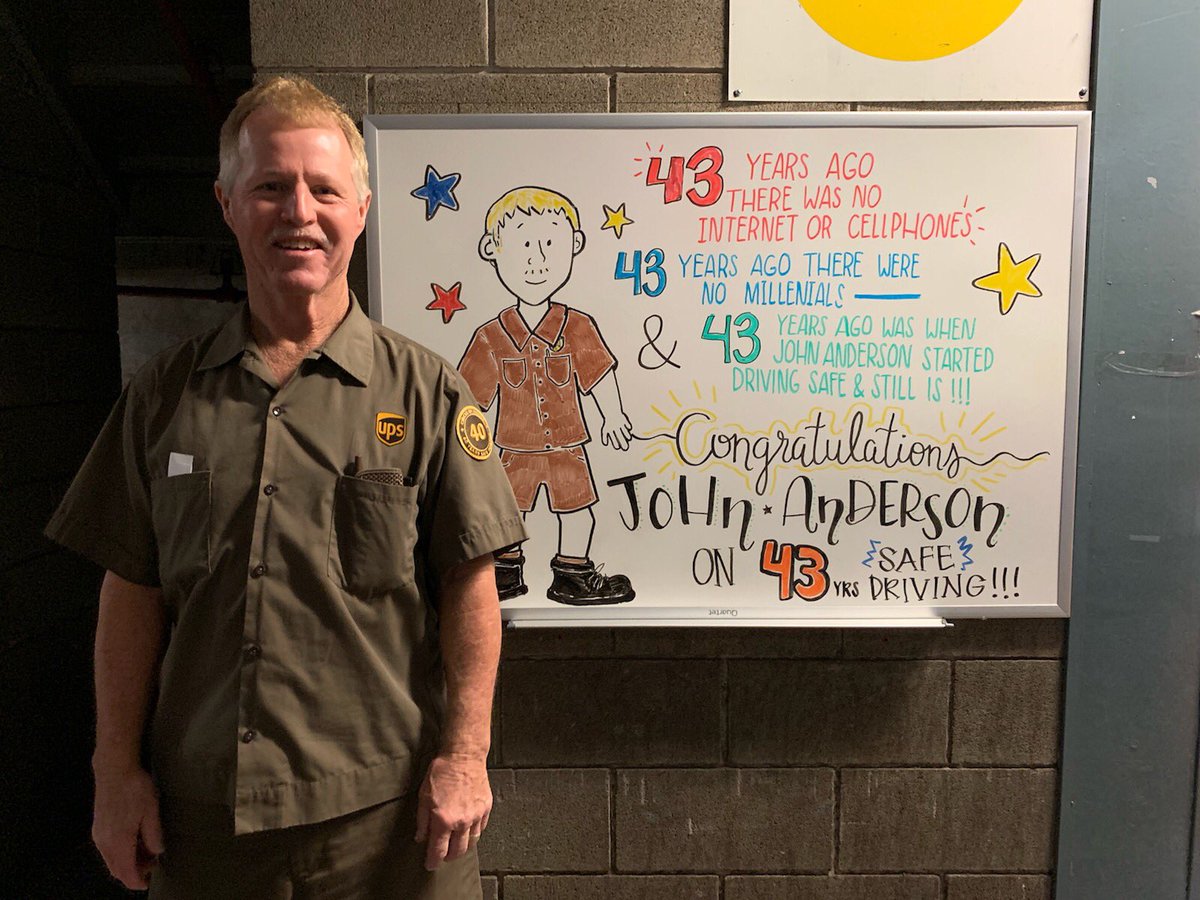 43 YEARS AGO
THERE WAS NO
INTERNET OR CELLPHONES
43 YEARS AGO THERE WERE
NO MILLENIALS
& 43 YEARS AGO WAS WHEN
JOHN ANDERSON STARTED
DRIVING SAFE & STILL IS !!!
Congratulations
JOHN ANDERSON
ON 43 YRS SAFE
DRIVING!!!
Quartet
ups
40